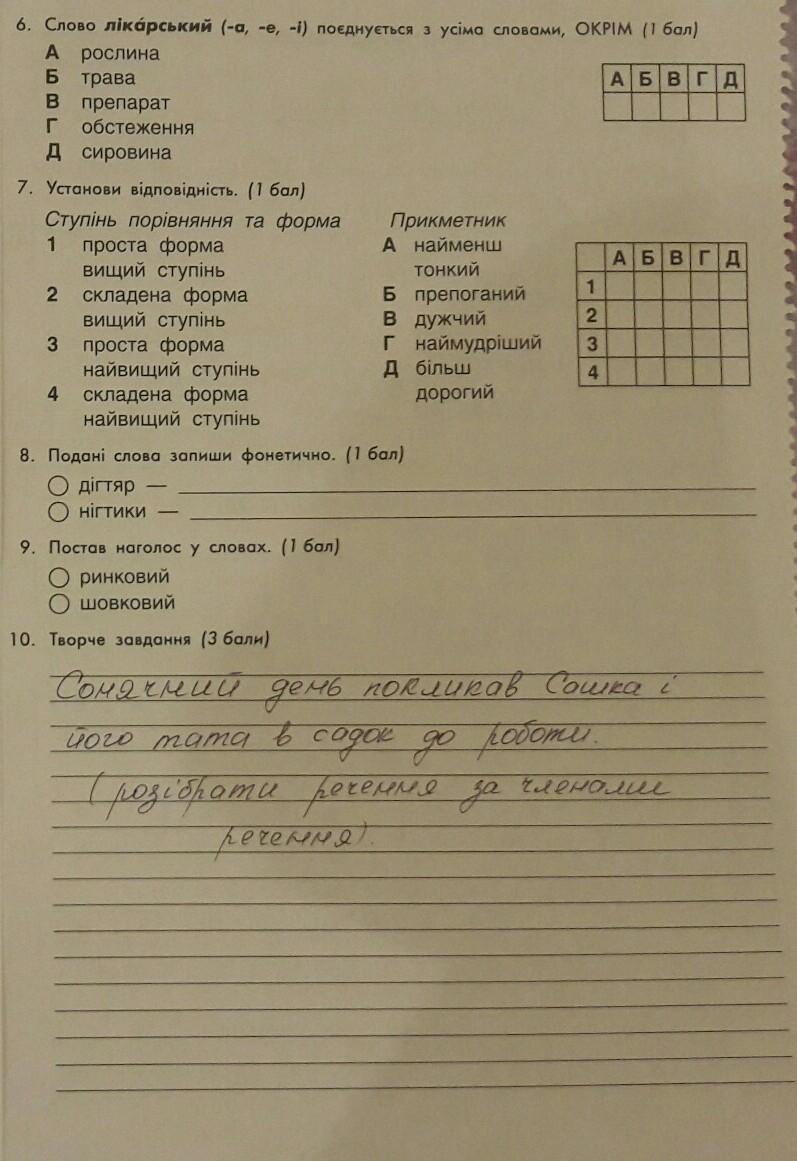 6. Слово ліка́рський (-а, -е, -і) поєднується з усіма словами, ОКРІМ (1 бал)
А рослина
Б трава
В препарат
Г обстеження
Д сировина
А Б В Г Д
7. Установи відповідність. (1 бал)
Ступінь порівняння та форма
1 проста форма
вищий ступінь
2 складена форма
вищий ступінь
3 проста форма
найвищий ступінь
4 складена форма
найвищий ступінь
Прикметник
А найменш
тонкий
Б препоганий
В дужчий
Г наймудріший
Д більш
дорогий
А Б В Г Д
1
2
3
4
8. Подані слова запиши фонетично. (1 бал)
дігтяр —
нігтики —
9. Постав наголос у словах. (1 бал)
ринковий
шовковий
10. Творче завдання (3 бали)
Сонячний день покликав Сашка і
його тата в садок до роботи.
(розібрати речення за членами
речення).